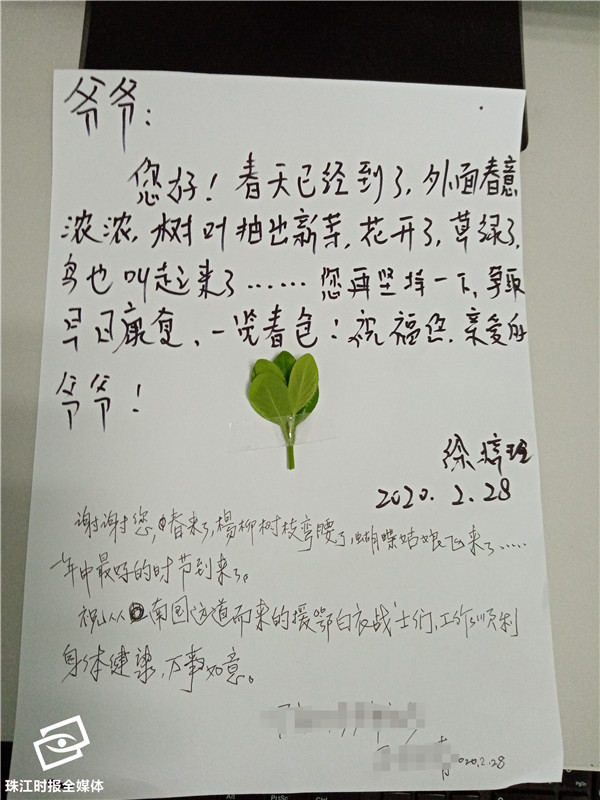 爷爷：
您好！春天已经到了，外面春意
浓浓，树叶抽出新芽，花开了，草绿了，
鸟也叫起来了……您再坚持一下，争取
早日康复，一览春色！祝福您，亲爱的
爷爷！
徐婷
2020.2.28
谢谢您，春来了，杨柳树枝弯腰了，蝴蝶姑娘飞来了……
一年中最好的时节到来了。
祝从南国远道而来的援鄂白衣战士们，工作顺利
身体健康，万事如意。
2020.2.28
珠江时报全媒体
Alt
PrtSc
Ctrl